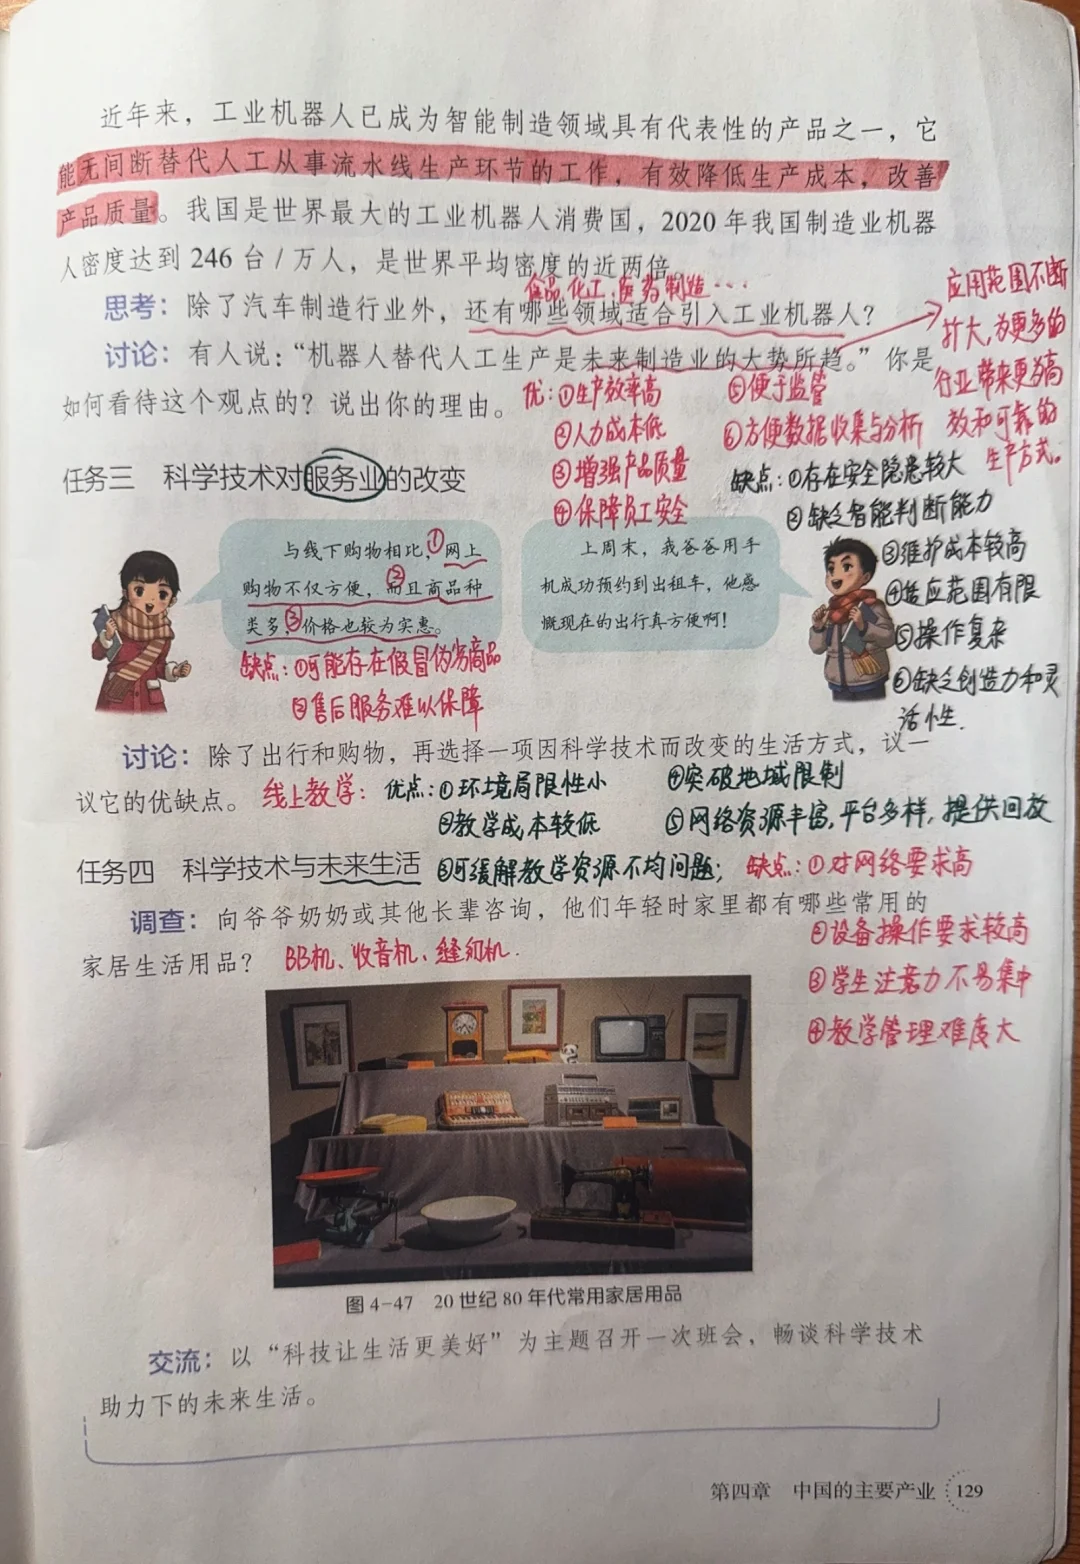 近年来，工业机器人已成为智能制造领域具有代表性的产品之一，它
能无间断替代人工从事流水线生产环节的工作，有效降低生产成本，改善
产品质量。我国是世界最大的工业机器人消费国，2020 年我国制造业机器
人密度达到 246 台 / 万人，是世界平均密度的近两倍。
食品、化工、医药制造…
思考：除了汽车制造行业外，还有哪些领域适合引入工业机器人？
应用范围不断
扩大，为更多的
行业带来更为高
效和可靠的
生产方式。
讨论：有人说：“机器人替代人工生产是未来制造业的大势所趋。”你是
如何看待这个观点的？说出你的理由。
优：①生产效率高
②人力成本低
③增强产品质量
④保障员工安全
⑤便于监管
⑥方便数据收集与分析
缺点：①存在安全隐患较大
②缺乏智能判断能力
③维护成本较高
④适应范围有限
⑤操作复杂
⑥缺乏创造力和灵
活性.
任务三 科学技术对服务业的改变
与线下购物相比，①网上
购物不仅方便，②而且商品种
类多，③价格也较为实惠。
缺点：①可能存在假冒伪劣商品
②售后服务难以保障
上周末，我爸爸用手
机成功预约到出租车，他感
慨现在的出行真方便啊！
讨论：除了出行和购物，再选择一项因科学技术而改变的生活方式，议一
议它的优缺点。
线上教学：优点：①环境局限性小
②教学成本较低
③可缓解教学资源不均问题；
④突破地域限制
⑤网络资源丰富，平台多样，提供回放
缺点：①对网络要求高
②设备操作要求较高
③学生注意力不易集中
④教学管理难度大
任务四 科学技术与未来生活
调查：向爷爷奶奶或其他长辈咨询，他们年轻时家里都有哪些常用的
家居生活用品？
BB机、收音机、缝纫机.
图 4-47 20 世纪 80 年代常用家居用品
交流：以“科技让生活更美好”为主题召开一次班会，畅谈科学技术
助力下的未来生活。
第四章 中国的主要产业 129